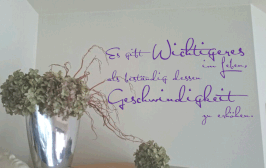 Es gibt Wichtigeres
im Leben,
als beständig dessen
Geschwindigkeit
zu erhöhen.